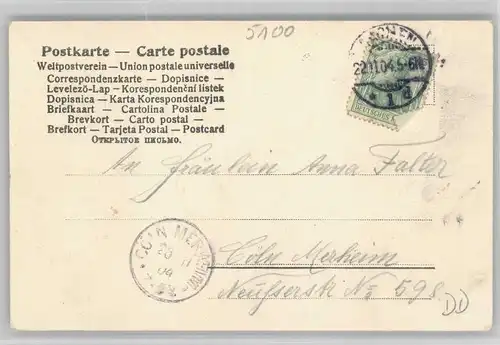 5100
Postkarte — Carte postale
Weltpostverein — Union postale universelle
Correspondenzkarte — Dopisnice —
Levelező-Lap — Korespondenční lístek
Dopisnica — Karta Korespondencyjna
Briefkaart — Cartolina Postale —
Brevkort — Carto postal —
Brefkort — Tarjeta Postal — Postcard
Открытое письмо.
AACHEN
22.11.04.5-6N
* 1 d
DEUTSCHES
An Fräulein Anna Falter
CÖLN MERHEIM
Cöln Merheim
Neußerstr No 598
DD